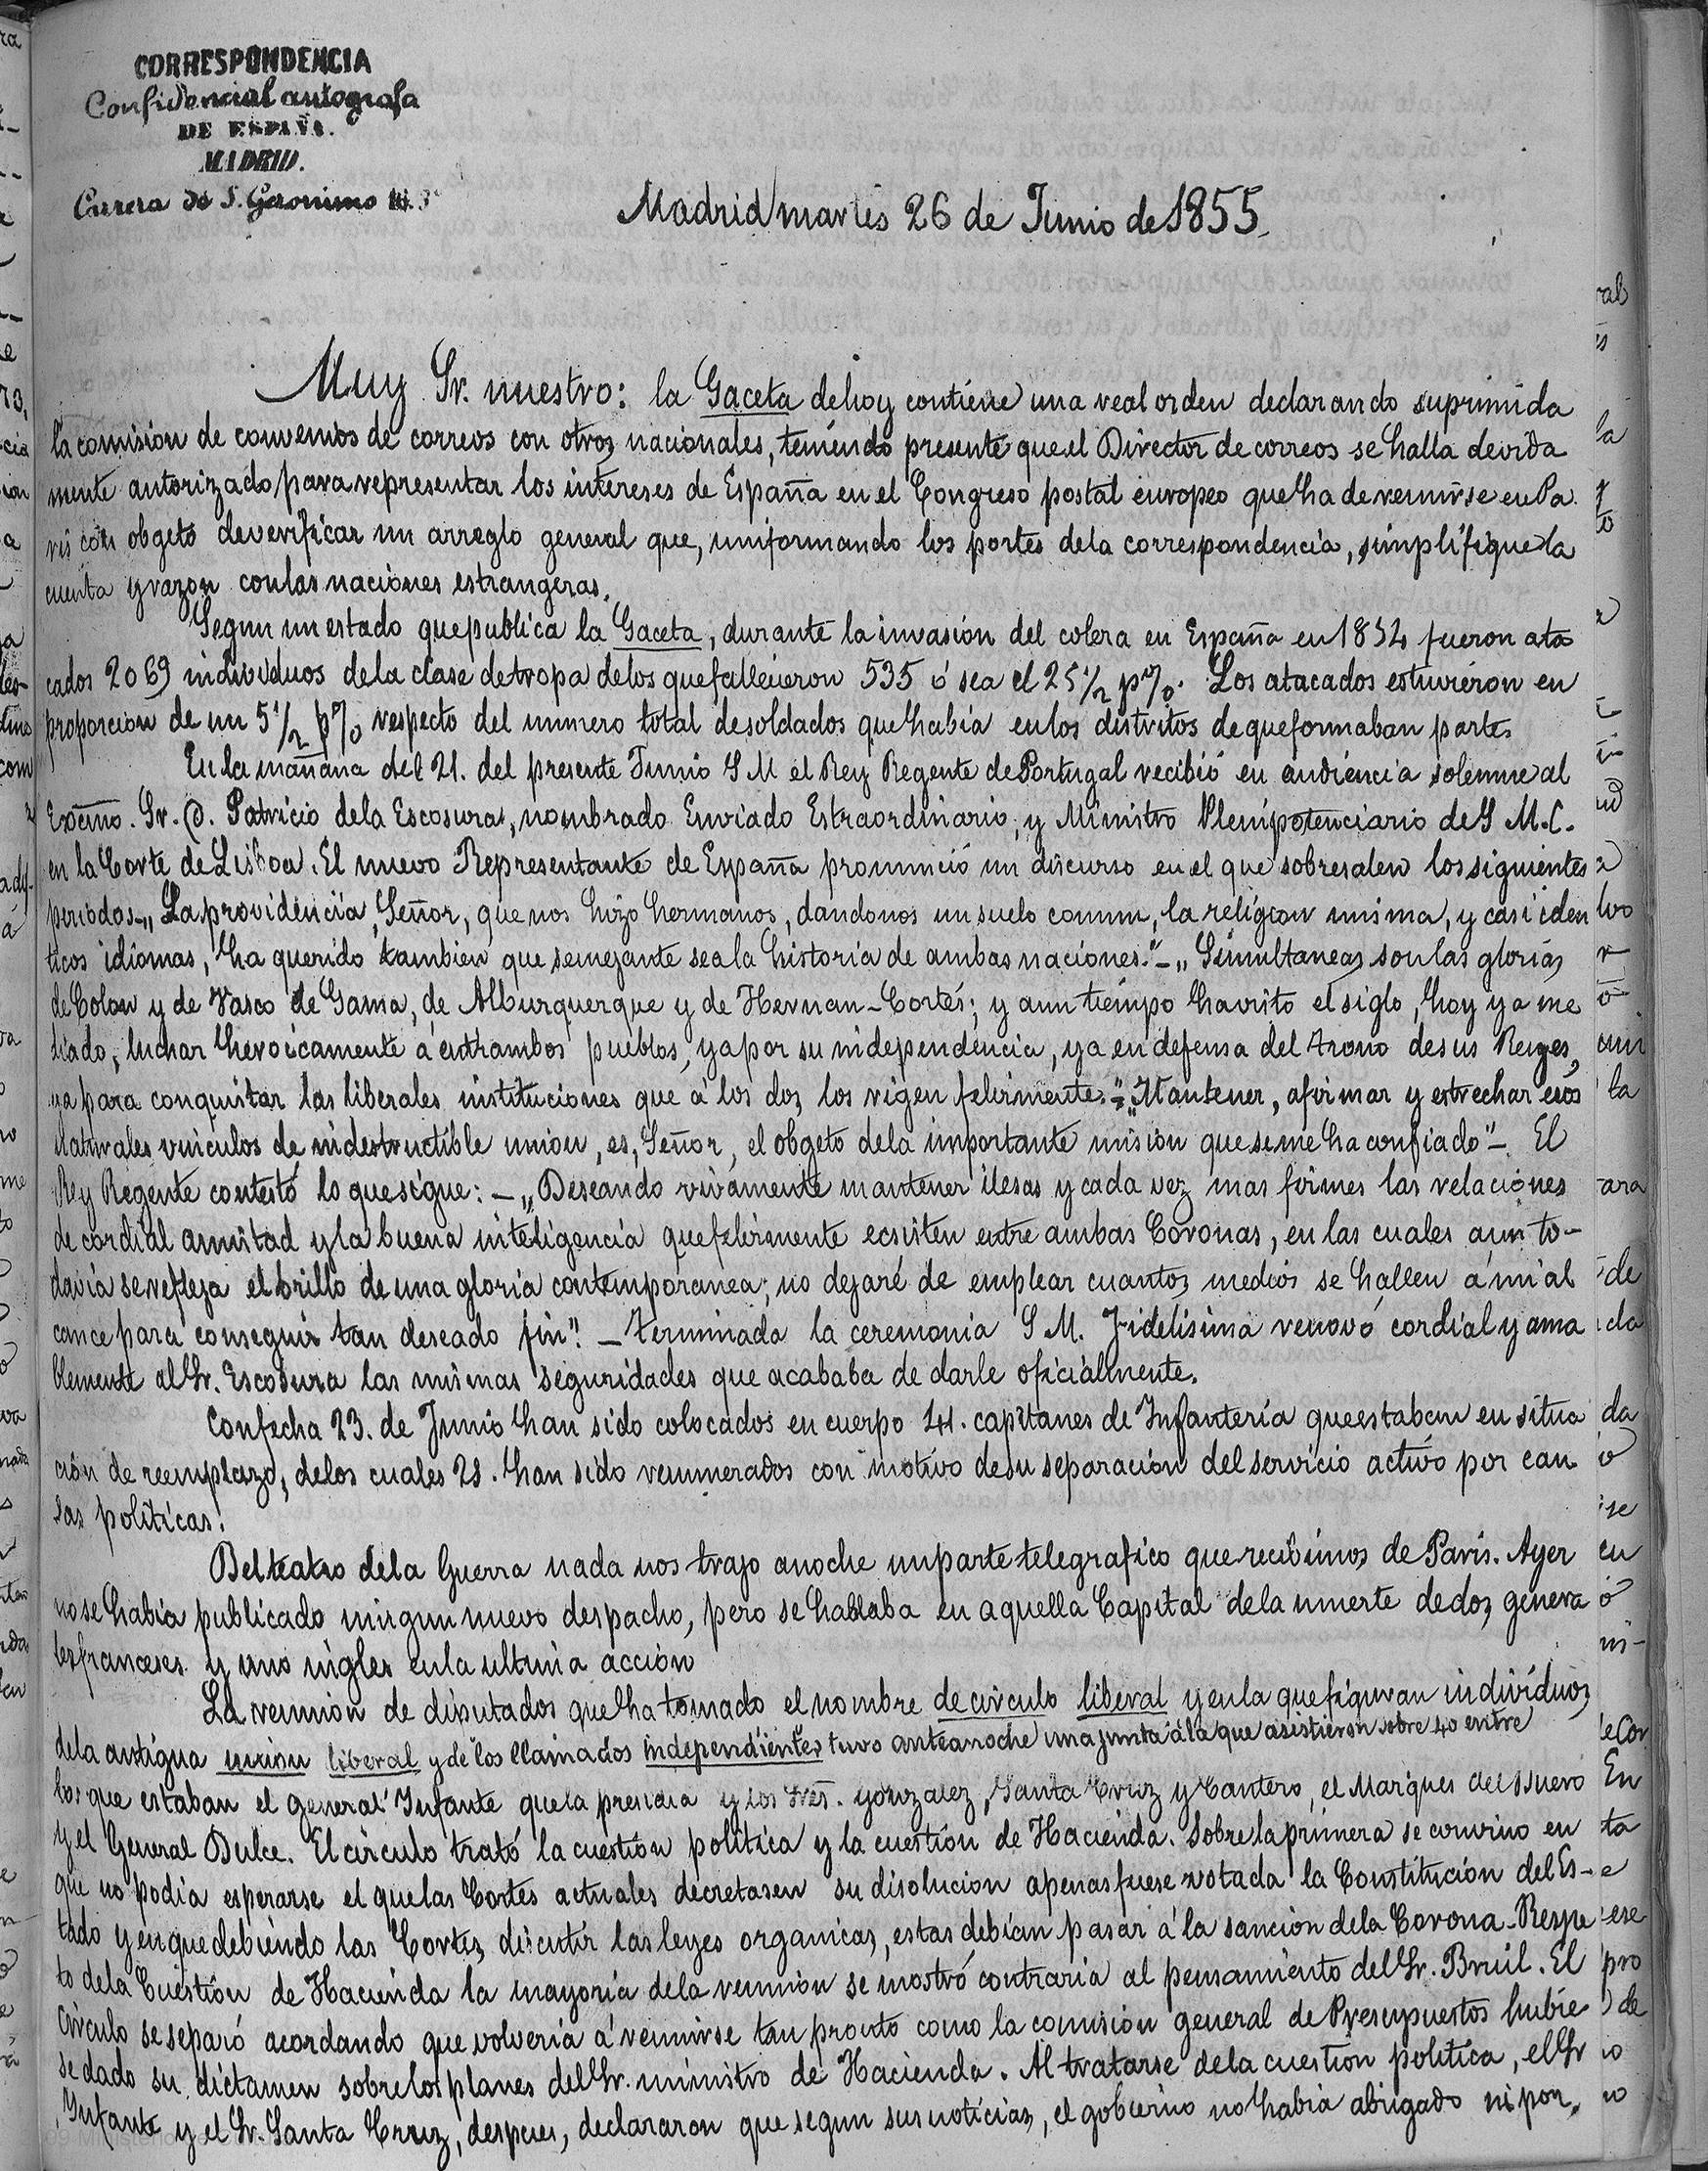 CORRESPONDENCIA
Confidencial autografa
DE ESPAÑA.
MADRID.
Carrera de S. Geronimo
Madrid martes 26 de Junio de 1855.
Muy Sr. nuestro: la Gaceta de hoy contiene una real orden declarando suprimida
la comision de convenios de correos con otros nacionales, teniendo presente que el Director de correos se halla devida
mente autorizado para representar los intereses de España en el Congreso postal europeo que ha de reunirse en Pa
ris con obgeto de verificar un arreglo general que, uniformando los portes de la correspondencia, simplifique la
cuenta y razon con las naciones estrangeras.
Segun un estado que publica la Gaceta, durante la invasion del colera en España en 1854 fueron ata
cados 2069 individuos de la clase de tropa de los que fallecieron 535 ó sea el 25 1/2 p%. Los atacados estuvieron en
proporcion de un 5 1/2 p% respecto del numero total de soldados que habia en los distritos de que formaban parte.
En la mañana del 21. del presente Junio S M el Rey Regente de Portugal recibió en audiencia solemne al
Excmo. Sr. D. Patricio de la Escosura, nombrado Enviado Estraordinario, y Ministro Plenipotenciario de S M. C.
en la Corte de Lisboa. El nuevo Representante de España pronunció un discurso en el que sobresalen los siguientes
periodos. „La providencia, Señor, que nos hizo hermanos, dandonos un suelo comun, la religion misma, y casi iden
ticos idiomas, ha querido tambien que semejante sea la historia de ambas naciones." – „Simultaneas son las glorias
de Colon y de Vasco de Gama, de Alburquerque y de Hernan-Cortés; y a un tiempo ha visto el siglo, hoy ya me
diado, luchar heroicamente á entrambos pueblos, ya por su independencia, ya en defensa del trono de sus Reyes,
ya para conquistar las liberales instituciones que á los dos los rigen felizmente." – „Mantener, afirmar y estrechar esos
naturales vinculos de indestructible union, es, Señor, el obgeto de la importante mision que se me ha confiado" –. El
Rey Regente contestó lo que sigue: – „Deseando vivamente mantener ilesas y cada vez mas firmes las relaciones
de cordial amistad y la buena inteligencia que felizmente ecsisten entre ambas Coronas, en las cuales aun to-
davia se refleja el brillo de una gloria contemporanea; no dejaré de emplear cuantos medios se hallen á mi al
cance para conseguir tan deseado fin". – Terminada la ceremonia S M. Fidelisima renovó cordial y ama
blemente al Sr. Escosura las mismas seguridades que acababa de darle oficialmente.
Con fecha 23. de Junio han sido colocados en cuerpo 41. capitanes de Infanteria que estaban en situa
ción de reemplazo, de los cuales 28. han sido remunerados con motivo de su separacion del servicio activo por cau
sas politicas.
Del teatro de la Guerra nada nos trajo anoche un parte telegrafico que recibimos de Paris. Ayer
no se habia publicado ningun nuevo despacho, pero se hablaba en aquella Capital de la muerte de dos genera
les franceses y uno ingles en la ultima acción
La reunion de diputados que ha tomado el nombre de circulo liberal y en la que figuran individuos
de la antigua union liberal y de los llamados independientes tuvo anteanoche una junta á la que asistieron sobre 40 entre
los que estaban el general Infante que la presidia y los Sres. Gonzalez, Santa Cruz y Cantero, el Marques del Duero
y el General Dulce. El circulo trató la cuestion politica y la cuestion de Hacienda. Sobre la primera se convino en
que no podia esperarse el que las Cortes actuales decretasen su disolucion apenas fuese votada la Constitución del Es-
tado y en que debiendo las Cortes discutir las leyes organicas, estas debian pasar á la sancion de la Corona. Respe
to de la Cuestion de Hacienda la mayoria de la reunion se mostró contraria al pensamiento del Sr. Bruil. El
Circulo se separó acordando que volveria á reunirse tan pronto como la comision general de Presupuestos hubie
se dado su dictamen sobre los planes del Sr. ministro de Hacienda. Al tratarse de la cuestion politica, el Sr
Infante y el Sr. Santa Cruz, despues, declararon que segun sus noticias, el gobierno no habia abrigado ni por